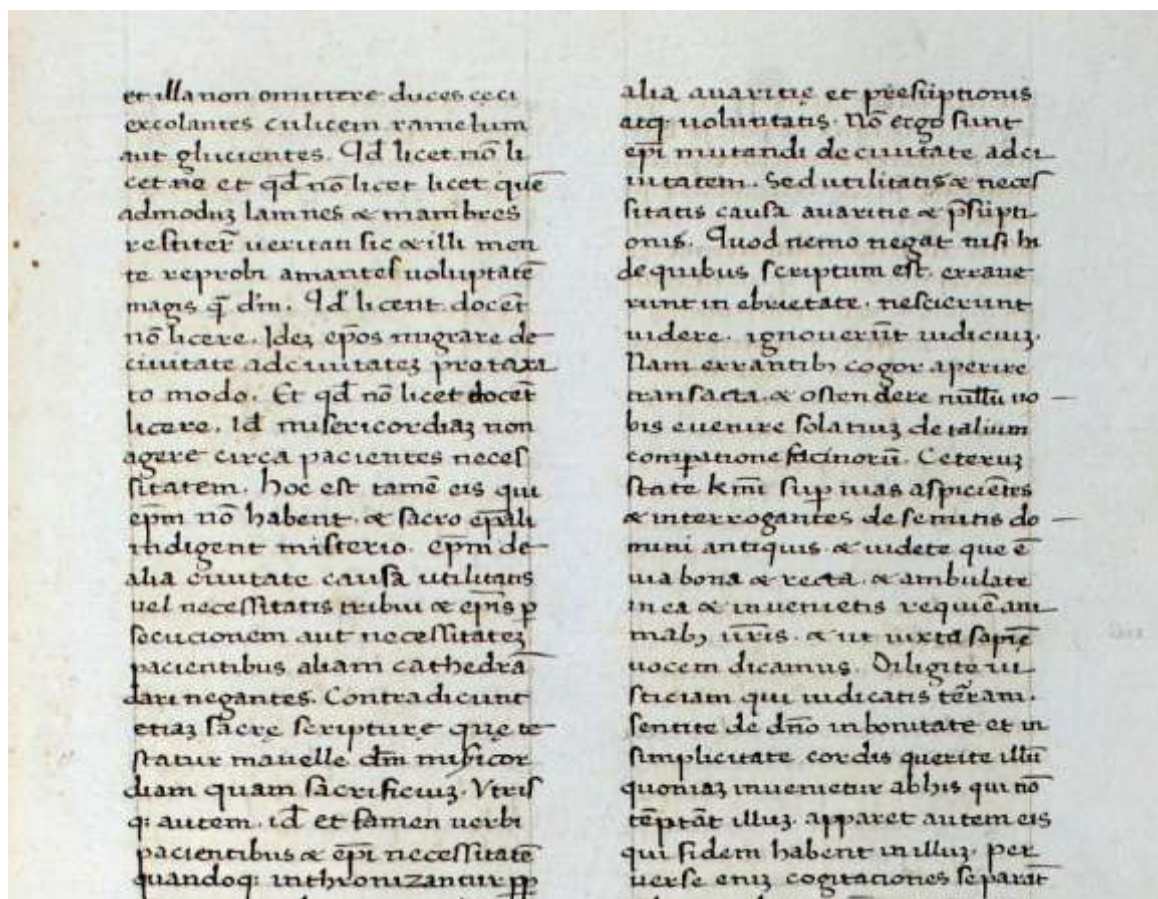 et illa non omittere duces cęci
excolantes culicem camelum
aut glucientes. Qd licet nō li
cet ne et qd nō licet licet quē
admoduꝫ Iamnes & mambres
restiter̄ ueritati sic & illi men
te reprobi amantes uoluptatē
magis q̄ dm̄. Id licent docēt
nō licere. Ideꝫ ep̄os migrare de
ciuitate ad ciuitateꝫ pretaxa
to modo. Et qd nō licet docēt
licere. Id misericordiaꝫ non
agere circa pacientes neces
sitatem. hoc est tamē eis qui
ep̄m nō habent. & sacro ep̄ali
indigent misterio. ep̄m de
alia ciuitate causa utilitatis
uel necessitatis tribui & ep̄is ꝑ
secucionem aut necessitateꝫ
pacientibus aliam cathedrā
dari negantes. Contradicunt
etiaꝫ sacrę scripturę quę te
statur mauelle dm̄ mis̄icor
diam quam sacrificiuꝫ. Vtris
q: autem. id et famen uerbi
pacientibus & ep̄i necessitatē
quandoq: inthronizantur ꝓꝑ
alia auaritię et p̄resūptionis
atq: uoluntatis. Nō ergo sunt
ep̄i mutandi de ciuitate ad ci
uitatem. Sed utilitatis & neces
sitatis causa auaritie & p̄sūpti
onis. Quod nemo negat nisi hi
de quibus scriptum est. erraue
runt in ebrietate. nescierunt
uidere. ignouerūt iudiciuꝫ.
Nam errantibꝫ cogor aperire
transacta. & ostendere nullū uo
bis euenire solatiuꝫ de talium
compatione facinorū. Ceteruꝫ
state kmī suꝑ uias aspiciētes
& interrogantes de semitis do
mini antiquis. & uidete que ē
uia bona & recta. & ambulate
in ea & inuenietis requiē ani
mabꝫ ur̄is. & ut iuxta sapiē
uocem dicamus. Diligite iu
sticiam qui iudicatis ter̄am.
sentite de dn̄o in bonitate et in
simplicitate cordis querite illū
quoniaꝫ inuenietur ab his qui nō
tēptāt illuꝫ. apparet autem eis
qui fidem habent in illuꝫ. per
uerse eniꝫ cogitationes separāt